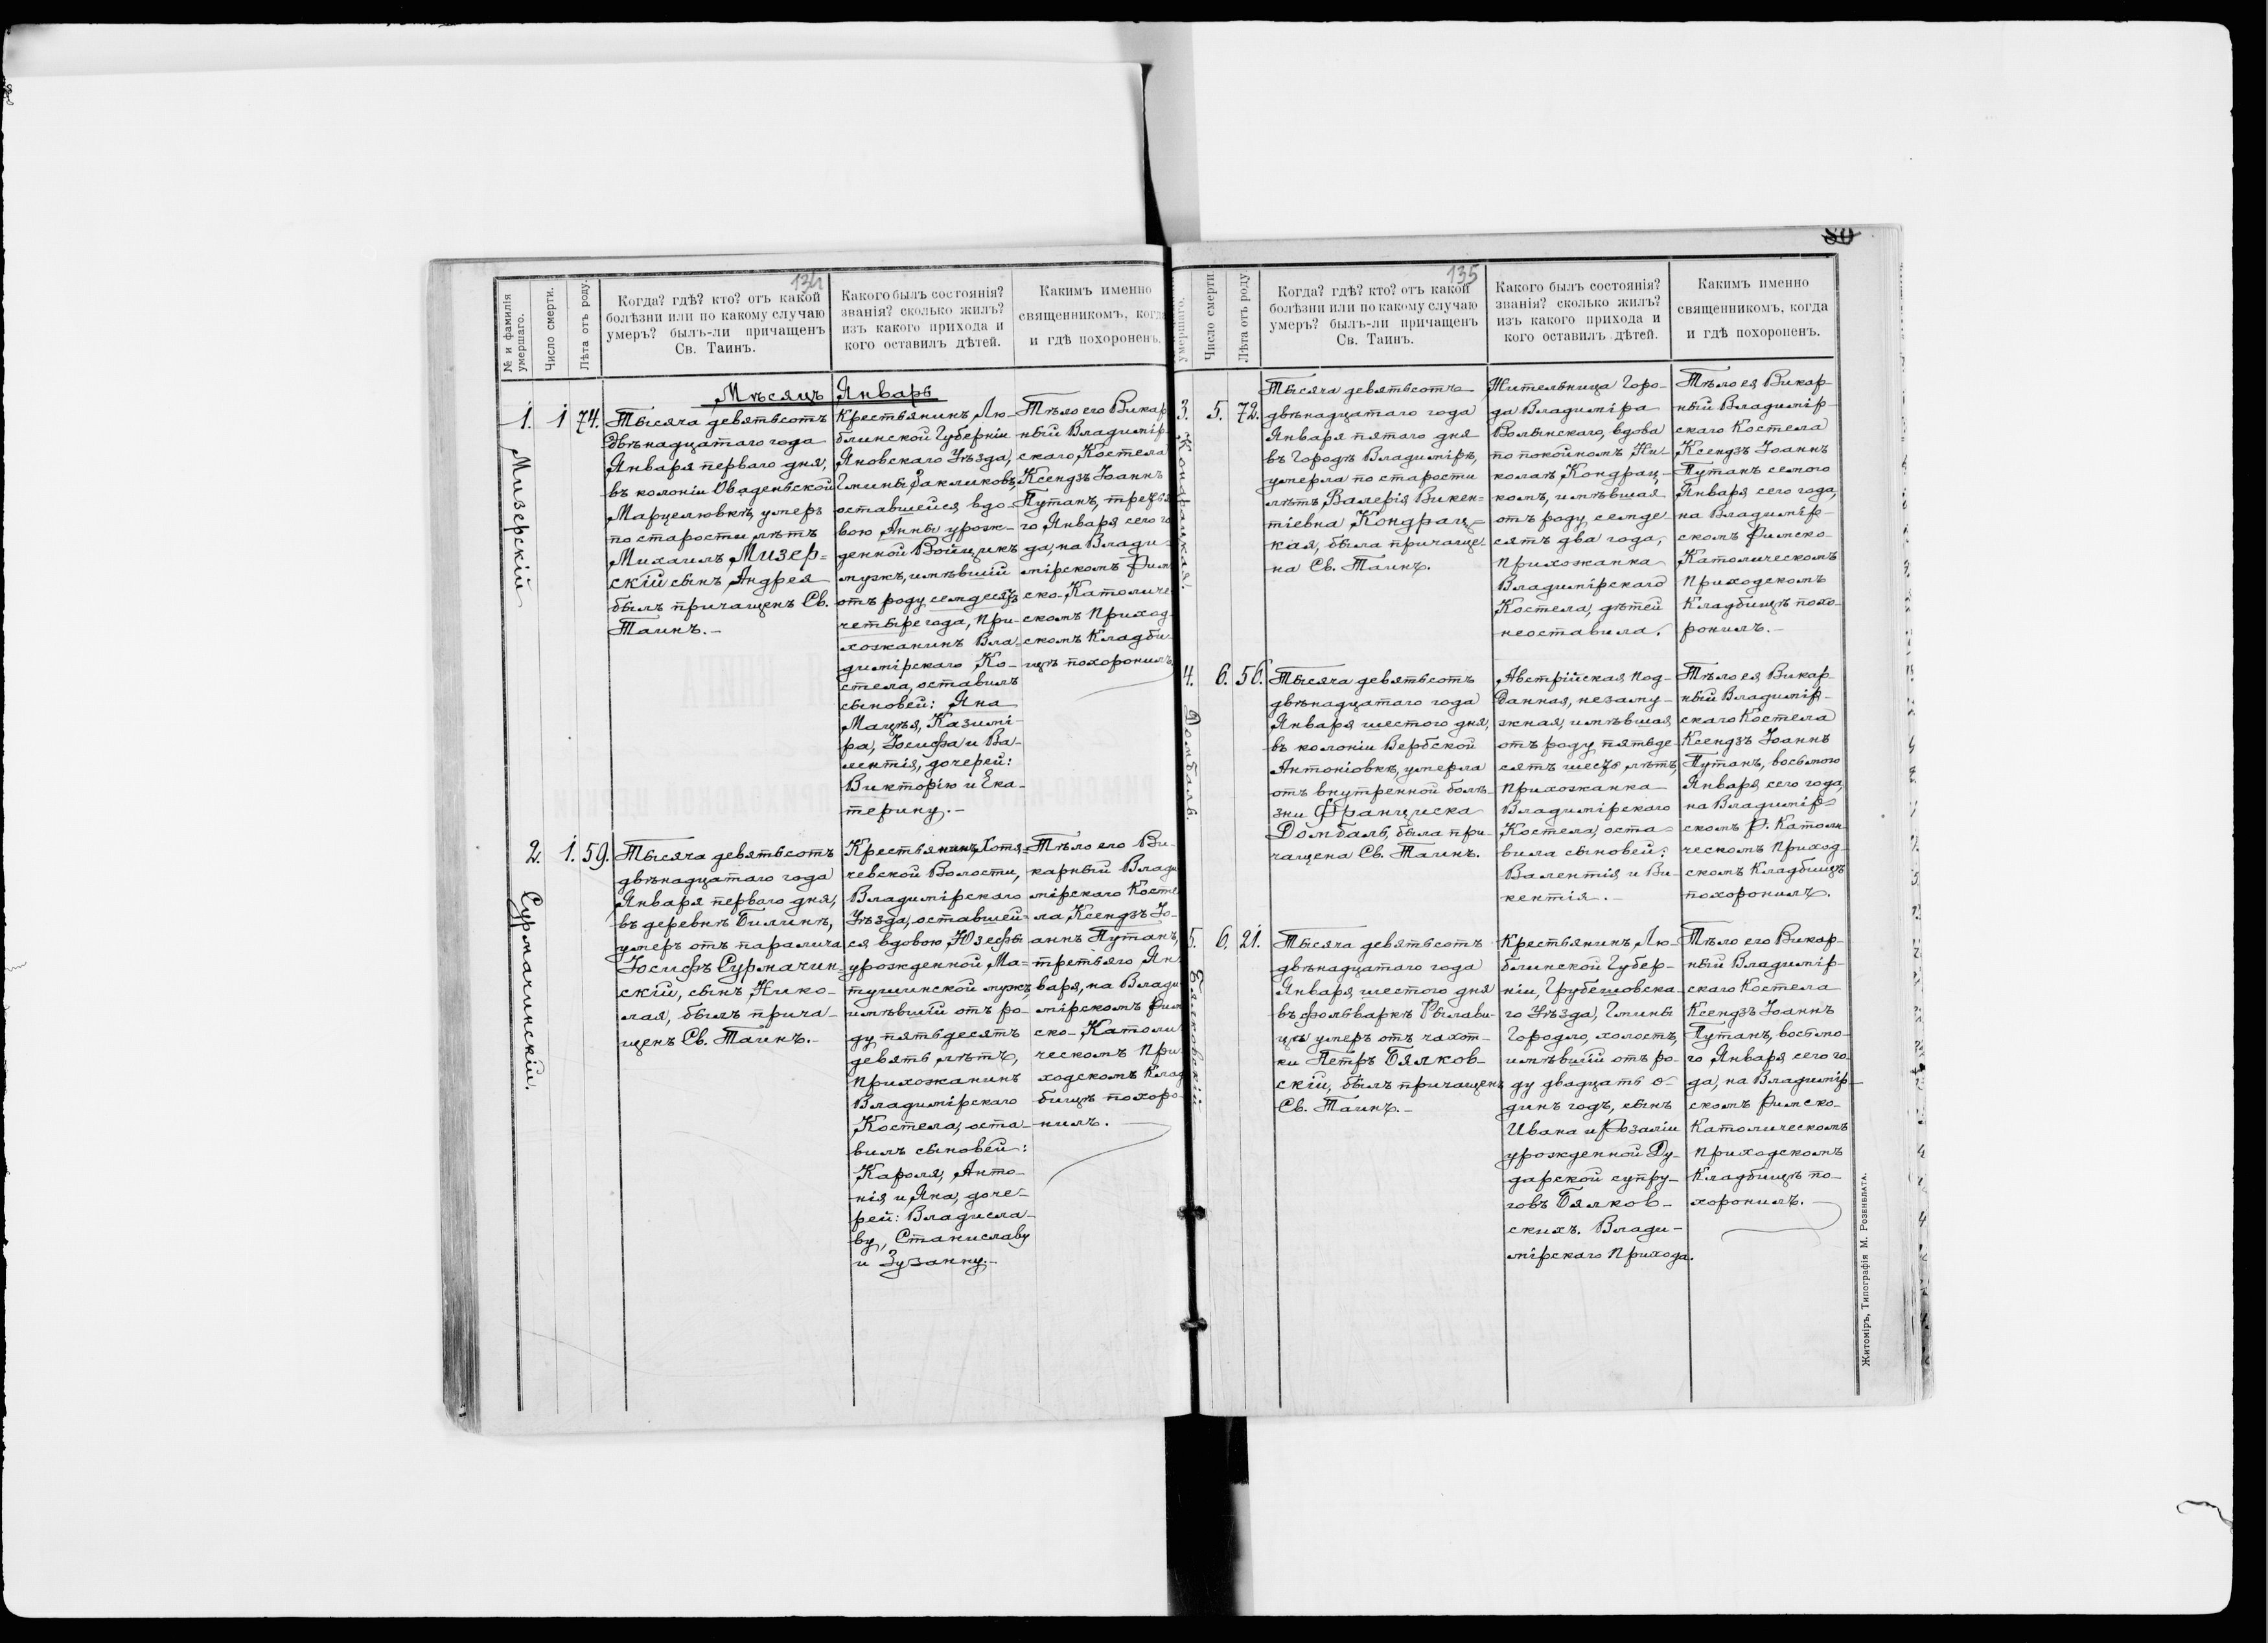 134
№ и фамилія умершаго.
Число смерти.
Лѣта отъ роду.
Когда? гдѣ? кто? отъ какой
болѣзни или по какому случаю
умеръ? былъ-ли причащенъ
Св. Таинъ.
Какого былъ состоянія?
званія? сколько жилъ?
изъ какого прихода и
кого оставилъ дѣтей.
Каким именно
священникомъ, когда
и гдѣ похороненъ.
Мѣсяцъ Январь
1.
Мизерскій
1
74.
Тысяча девятьсотъ
двѣнадцатаго года
Января перваго дня,
въ колоніи Оваденьской
Марцелювкѣ, умеръ
по старости лѣтъ
Михаилъ Мизер=
скій сынъ Андрея
былъ причащенъ Св.
Таинъ.-
Крестьянинъ Лю-
блинской Губерніи
Яновскаго Уѣзда,
Гмины Закликовъ,
оставшейся вдо-
вою Анны урож-
денной Войцикъ
мужъ, имѣвшій
отъ роду семдесятъ
четыре года, при-
хожанинъ Вла-
димірскаго Ко-
стела, оставилъ
сыновей: Яна
Мацѣя, Казимі-
ра, Іосифа и Ва-
лентія, дочерей:
Викторію и Ека-
терину.-
Тѣло его Викар
ный Владимір-
скаго Костела
Ксендзъ Іоаннъ
Путанъ, третья
го Января сего го
да, на Влади-
мірскомъ Рим
ско-Католиче
скомъ Приход-
скомъ Кладби-
щѣ похоронилъ
2.
Сурмачинскій.
1.
59.
Тысяча девятьсотъ
двѣнадцатаго года
Января перваго дня,
въ деревнѣ Билинѣ,
умеръ отъ паралича
Іосифъ Сурмачин=
скій, сынъ Нико-
лая, былъ прича-
щенъ Св. Таинъ.-
Крестьянинъ Хотя-
чевской Волости,
Владимірскаго
Уѣзда, оставшей-
ся вдовою Юзефы
урожденной Ма=
тушинской мужъ,
имѣвшій отъ ро-
ду пятьдесятъ
девять лѣтъ,
прихожанинъ
Владимірскаго
Костела, оста-
вилъ сыновей:
Кароля, Анто-
нія и Яна, доче-
рей: Владисла-
ву, Станиславу
и Зузанну.-
Тѣло его Ви-
карный Влади
мірскаго Косте
ла Ксендзъ Іо-
аннъ Путанъ,
третьяго Ян
варя, на Влади
мірскомъ Рим
ско-Католи
ческомъ При-
ходскомъ Клад
бищѣ похоро-
нилъ.
80
135
умершаго.
Число смерти.
Лѣта отъ роду.
Когда? гдѣ? кто? отъ какой
болѣзни или по какому случаю
умеръ? былъ-ли причащенъ
Св. Таинъ.
Какого былъ состоянія?
званія? сколько жилъ?
изъ какого прихода и
кого оставилъ дѣтей.
Какимъ именно
священникомъ, когда
и гдѣ похороненъ.
3.
Кондрацкая.
5.
72.
Тысяча девятьсотъ
двѣнадцатаго года
Января пятаго дня
въ Городѣ Владимірѣ,
умерла по старости
лѣтъ Валерія Викен=
тіевна Кондрац=
кая, была причаще-
на Св. Таинъ.
Жительница Горо-
да Владиміра
Волынскаго, вдова
по покойномъ Ни-
колаѣ Кондрац-
комъ, имѣвшая
отъ роду семде-
сятъ два года,
прихожанка
Владимірскаго
Костела, дѣтей
неоставила.
Тѣло ея Викар-
ный Владимір-
скаго Костела
Ксендзъ Іоаннъ
Путанъ семого
Января сего года,
на Владимір-
скомъ Римско-
Католическомъ
приходскомъ
Кладбищѣ похо-
ронилъ.-
4.
Домбаль.
6.
56.
Тысяча девятьсотъ
двѣнадцатаго года
Января шестого дня,
въ колоніи Вербской
Антоніовкѣ, умерла
отъ внутренной болѣ-
зни Франциска
Домбаль, была при-
чащена Св. Таинъ.
Австрійская под-
данная, незаму-
жная, имѣвшая
отъ роду пятьде-
сятъ шесть лѣтъ,
прихожанка
Владимірскаго
Костела, оста-
вила сыновей:
Валентія и Ви-
кентія.-
Тѣло ея Викар-
ный Владимір-
скаго Костела
Ксендзъ Іоаннъ
Путанъ, восьмого
Января сего года,
на Владимір-
скомъ Р. Католи-
ческомъ приход-
скомъ Кладбищѣ
похоронилъ.
5.
Бялковскій
6.
21.
Тысяча девятьсотъ
двѣнадцатаго года
Января шестого дня
въ фольваркѣ Рылави-
цѣ умеръ отъ чахот-
ки Петръ Бялков-
скій, былъ причащенъ
Св. Таинъ.-
Крестьянинъ Лю-
блинской Губер-
ніи, Грубешовска-
го Уѣзда, Гмины
Городло, холостъ,
имѣвшій отъ ро-
ду двадцать о-
динъ годъ, сынъ
Ивана и Розаліи
урожденной Ду-
дарской супру-
говъ Бялков-
скихъ. Влади-
мірскаго Прихода.
Тѣло его Викар-
ный Владимір-
скаго Костела
Ксендзъ Іоаннъ
Путанъ, восьмо-
го Января сего го-
да, на Владимір-
скомъ Римско-
Католическомъ
приходскомъ
Кладбищѣ по-
хоронилъ.-
Житоміръ, Типографія М. Розенблата.